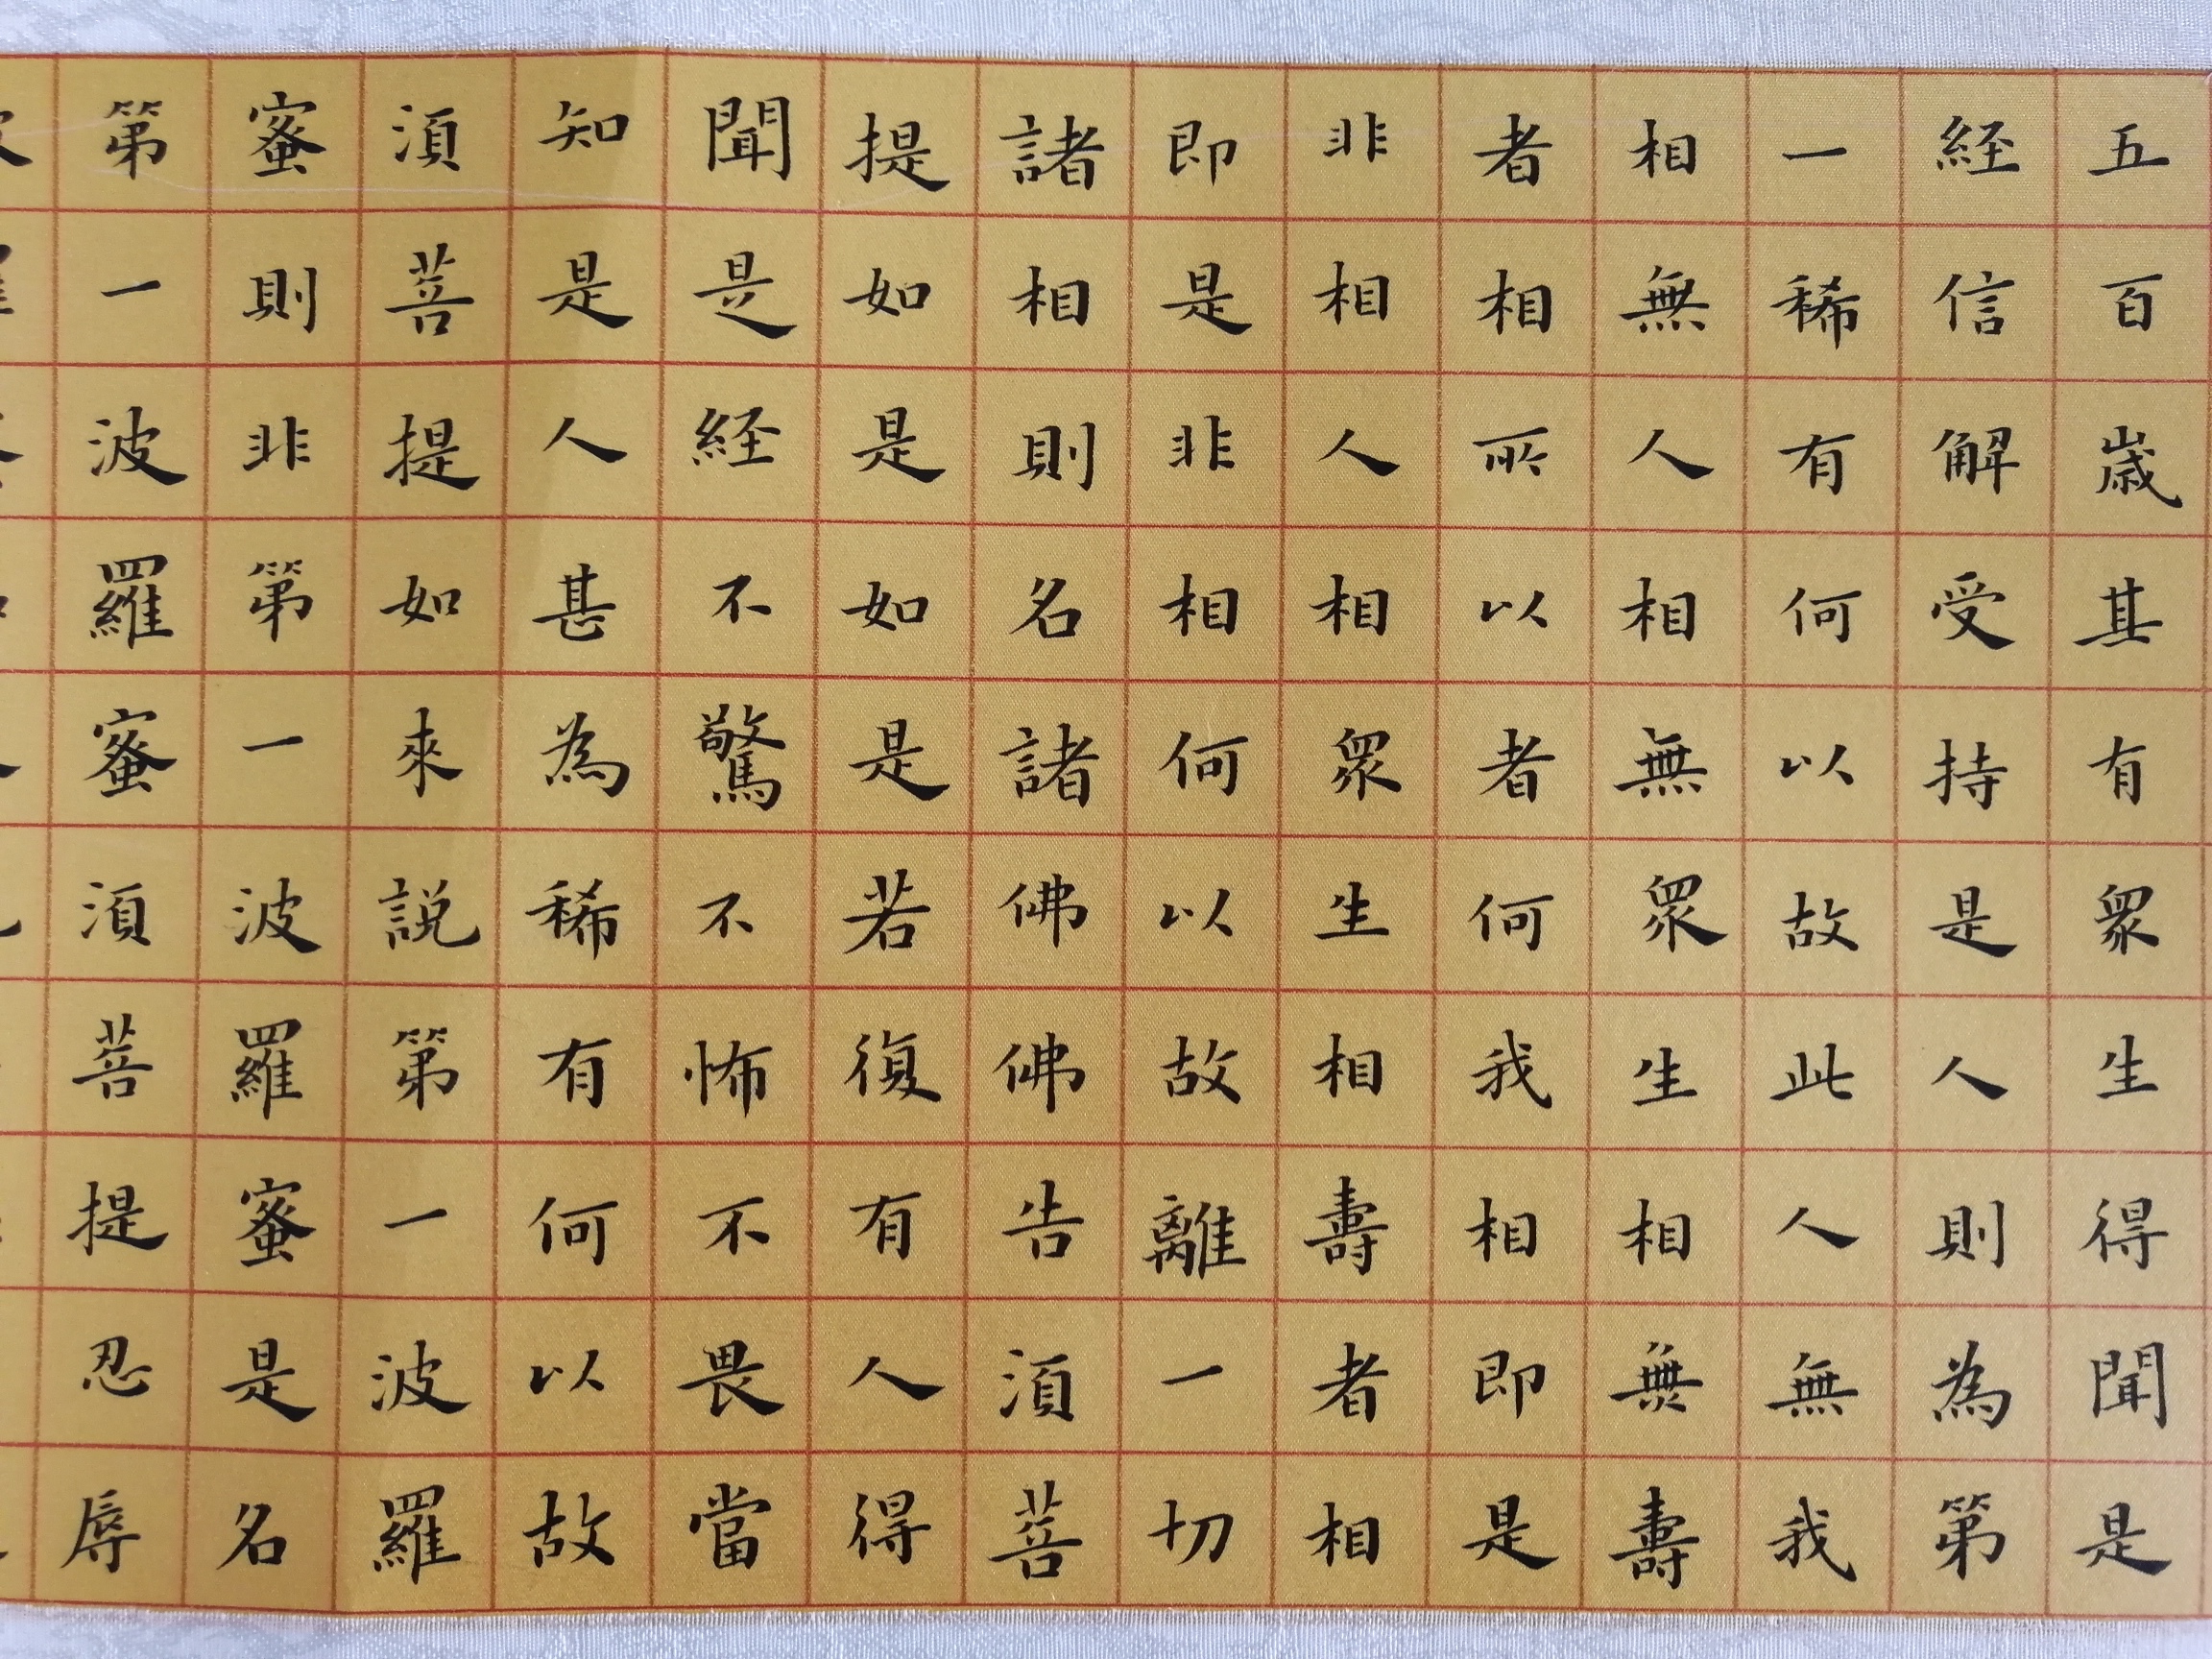 五百嵗其有眾生得聞是
経信解受持是人則為第
一稀有何以故此人無我
相無人相無眾生相無壽
者相所以者何我相即是
非相人相眾生相壽者相
即是非相何以故離一切
諸相則名諸佛佛告湏菩
提如是如是若復有人得
聞是経不驚不怖不畏當
知是人甚為稀有何以故
湏菩提如來説第一波羅
蜜則非第一波羅蜜是名
第一波羅蜜湏菩提忍辱